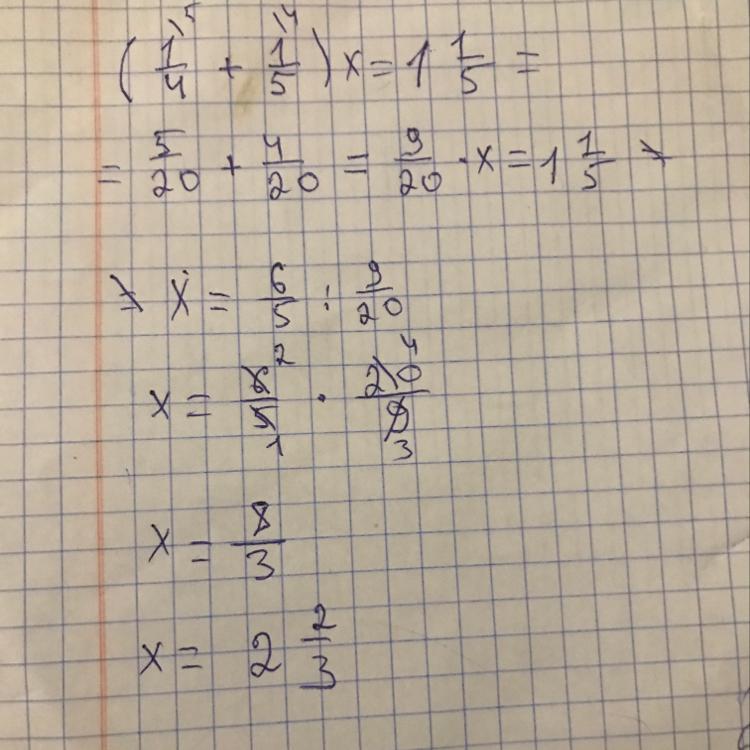 (1/4 ⁵ + 1/5 ⁴) x = 1 1/5 =
= 5/20 + 4/20 = 9/20 · x = 1 1/5 ⇒
⇒ x = 6/5 : 9/20
x = 6/5 2 1 · 20/9 4 3
x = 8/3
x = 2 2/3